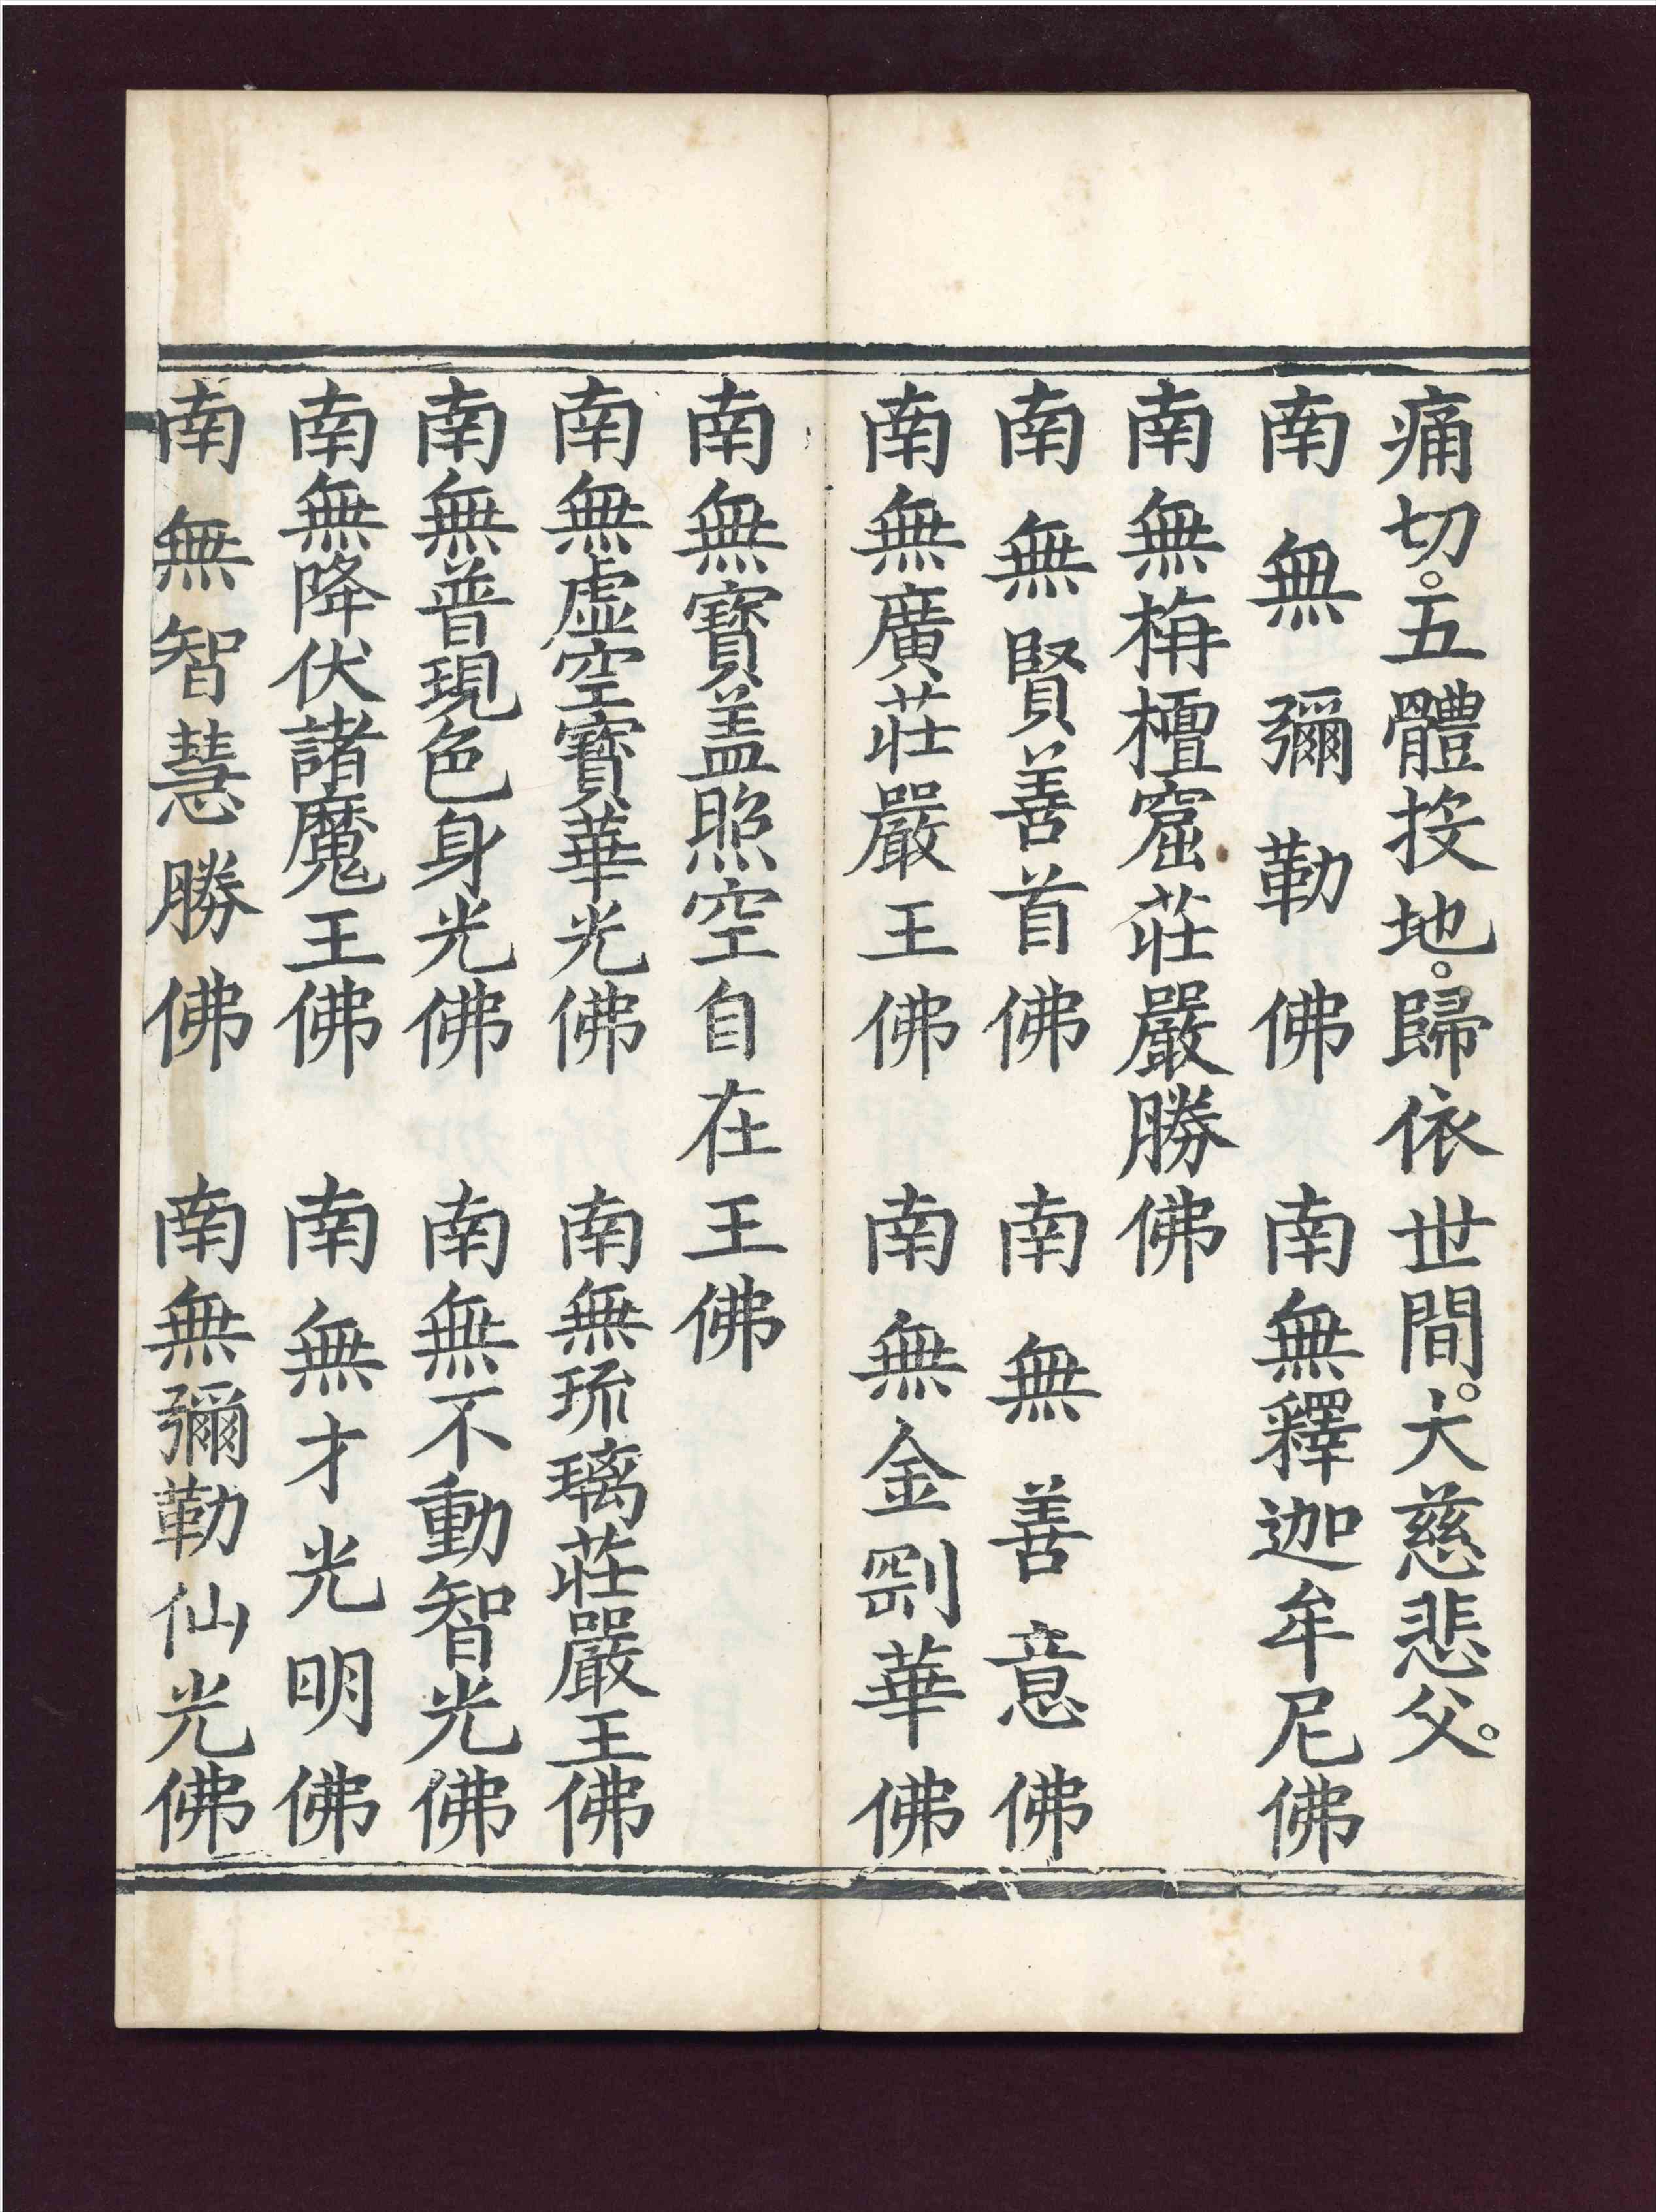 痛切。五體投地。歸依世間。大慈悲父。
南無彌勒佛　南無釋迦牟尼佛
南無栴檀窟莊嚴勝佛
南無賢善首佛　南無善意佛
南無廣莊嚴王佛　南無金剛華佛
南無寶盖照空自在王佛
南無虛空寶華光佛　南無琉璃莊嚴王佛
南無普現色身光佛　南無不動智光佛
南無降伏諸魔王佛　南無才光明佛
南無智慧勝佛　南無彌勒仙光佛